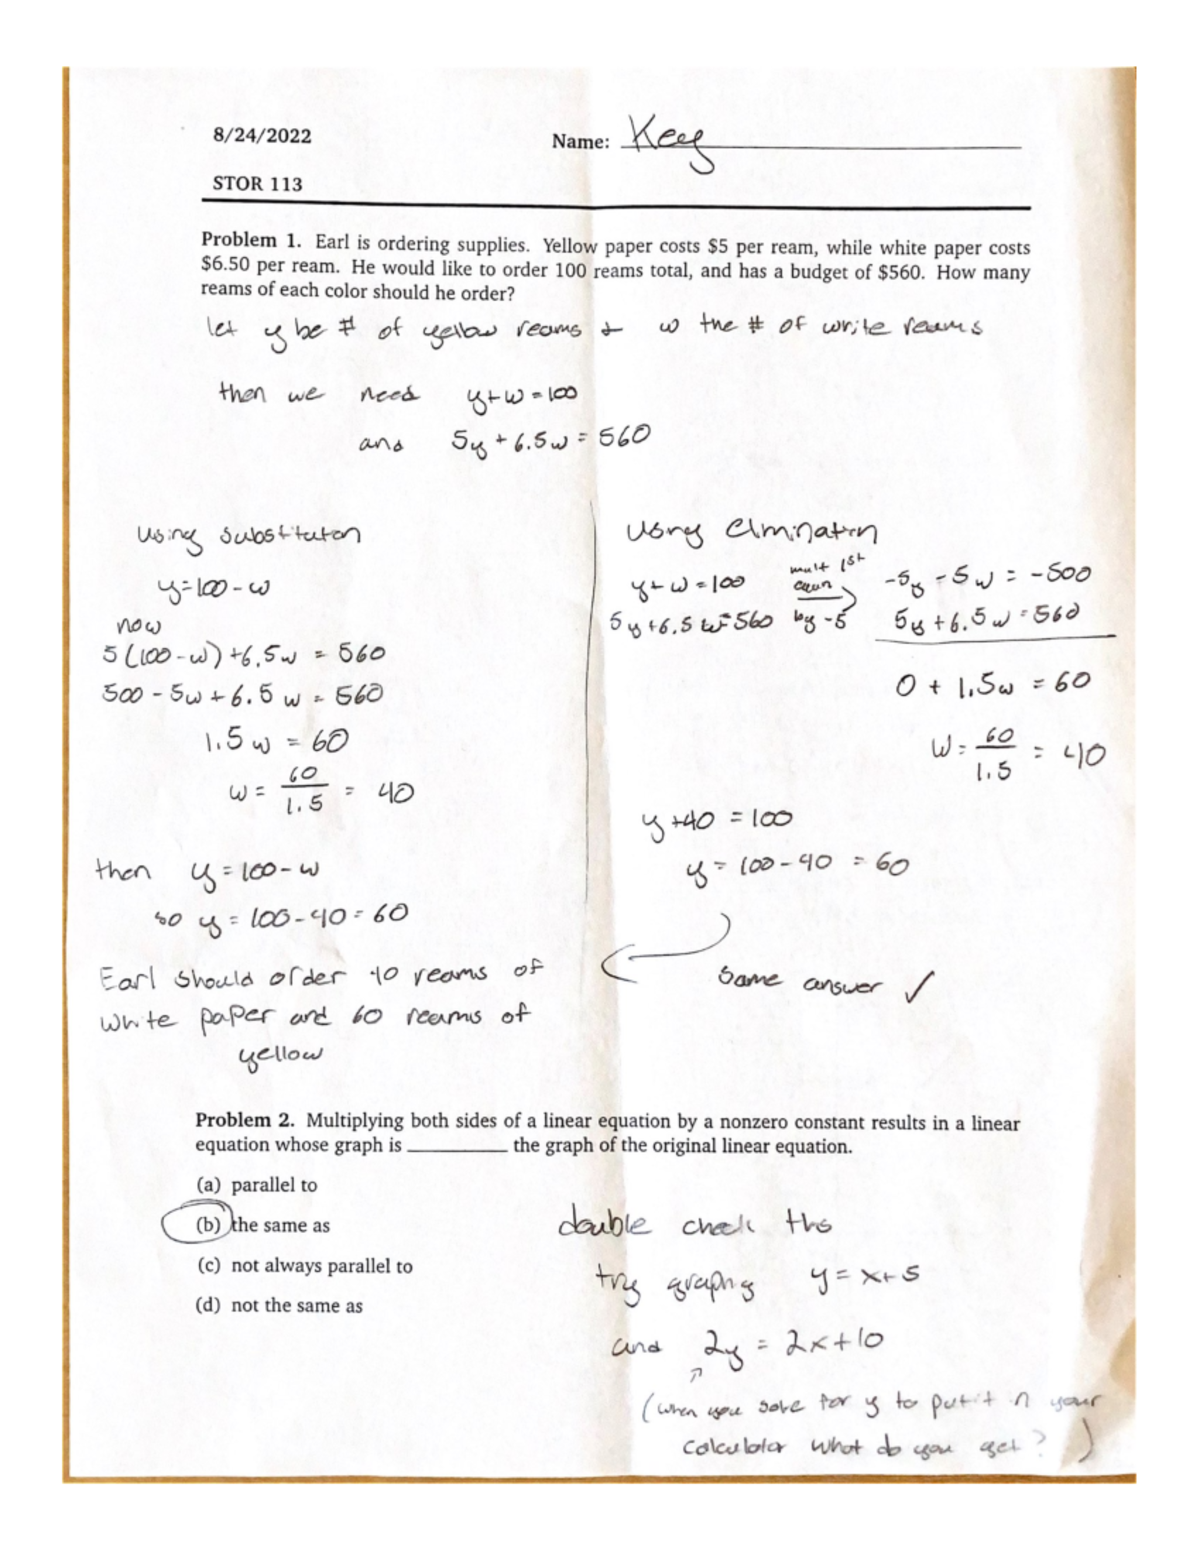 8/24/2022 Name: Key
STOR 113
Problem 1. Earl is ordering supplies. Yellow paper costs $5 per ream, while white paper costs
$6.50 per ream. He would like to order 100 reams total, and has a budget of $560. How many
reams of each color should he order?
let y be # of yellow reams + w the # of write reams
then we need y+w=100
and 5y + 6.5w = 560
Using Substituton
y=100-w
now
5(100-w)+6.5w = 560
500-5w+6.5w = 560
1.5w = 60
w = 60/1.5 = 40
then y=100-w
so y = 100-40=60
Earl should order 40 reams of
white paper and 60 reams of
yellow
Using Elimination
y+w=100 mult 1st eqn by -5 -5y-5w = -500
5y+6.5w=560 5y+6.5w=560
0 + 1.5w = 60
w = 60/1.5 = 40
y+40 = 100
y = 100-40 = 60
Same answer ✓
Problem 2. Multiplying both sides of a linear equation by a nonzero constant results in a linear
equation whose graph is ________ the graph of the original linear equation.
(a) parallel to
(b) the same as
(c) not always parallel to
(d) not the same as
double check this
try graphing y = x+5
and 2y = 2x+10
(when you solve for y to put it in your
calculator what do you get?)